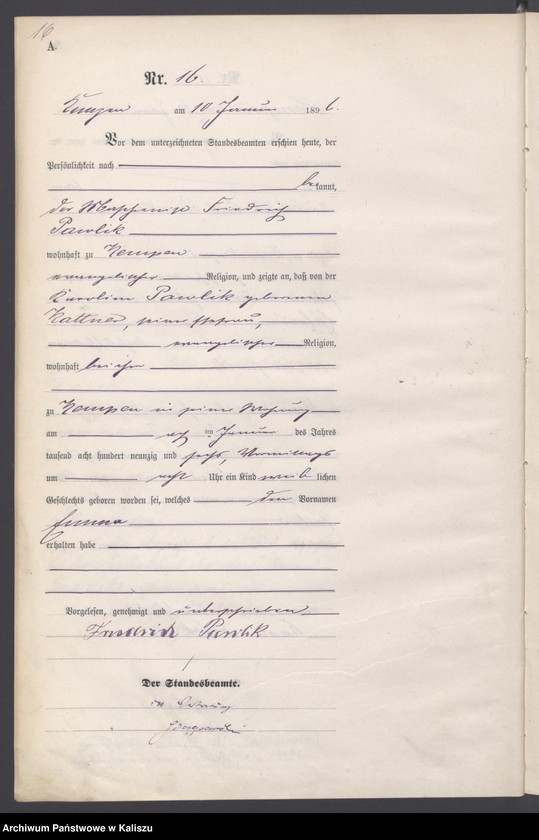 16
A.
Nr. 16.
Kempen am 10 Januar 1896.
Vor dem unterzeichneten Standesbeamten erschien heute, der
Persönlichkeit nach
bekannt,
der Friedrich
Pawlik
wohnhaft zu Kempen
evangelischer Religion, und zeigte an, daß von der
Karoline Pawlik geborenen
Kattner, seiner Ehefrau,
evangelischer Religion,
wohnhaft bei ihm
zu Kempen in seiner Wohnung
am ten Januar des Jahres
tausend acht hundert neunzig und sechs, Vormittags
um acht Uhr ein Kind weiblichen
Geschlechts geboren worden sei, welches den Vornamen
Emma
erhalten habe
Vorgelesen, genehmigt und unterschrieben
Friedrich Pawlik
Der Standesbeamte.
In Vertretung
Archiwum Państwowe w Kaliszu